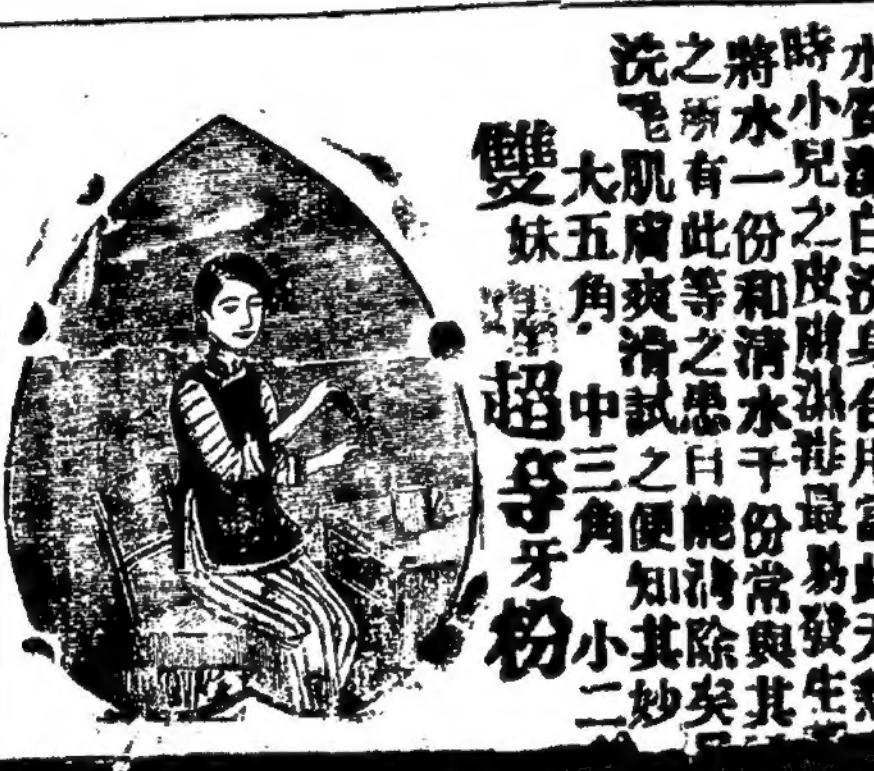 水質潔白洗身合用當此天
時小兒之皮膚瘡痱最易發生
將水一份和清水千份常與其
之所有此等之患自能清除矣
洗 肌膚爽滑試之便知其妙
大五角 中三角 小二
雙妹 超等牙粉